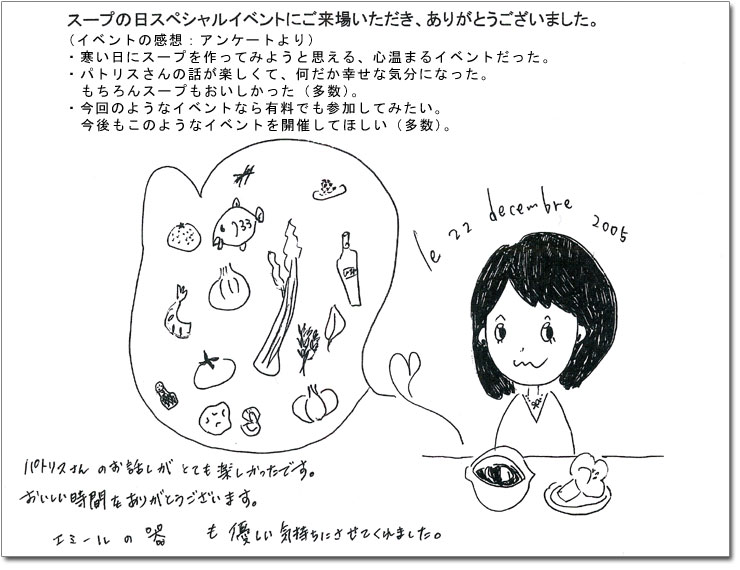 スープの日スペシャルイベントにご来場いただき、ありがとうございました。
（イベントの感想：アンケートより）
・寒い日にスープを作ってみようと思える、心温まるイベントだった。
・パトリスさんの話が楽しくて、何だか幸せな気分になった。
もちろんスープもおいしかった（多数）。
・今回のようなイベントなら有料でも参加してみたい。
今後もこのようなイベントを開催してほしい（多数）。
le 22 decembre 2005
パトリスさんのお話しがとても楽しかったです。
おいしい時間をありがとうございます。
エミールの器も優しい気持ちにさせてくれました。